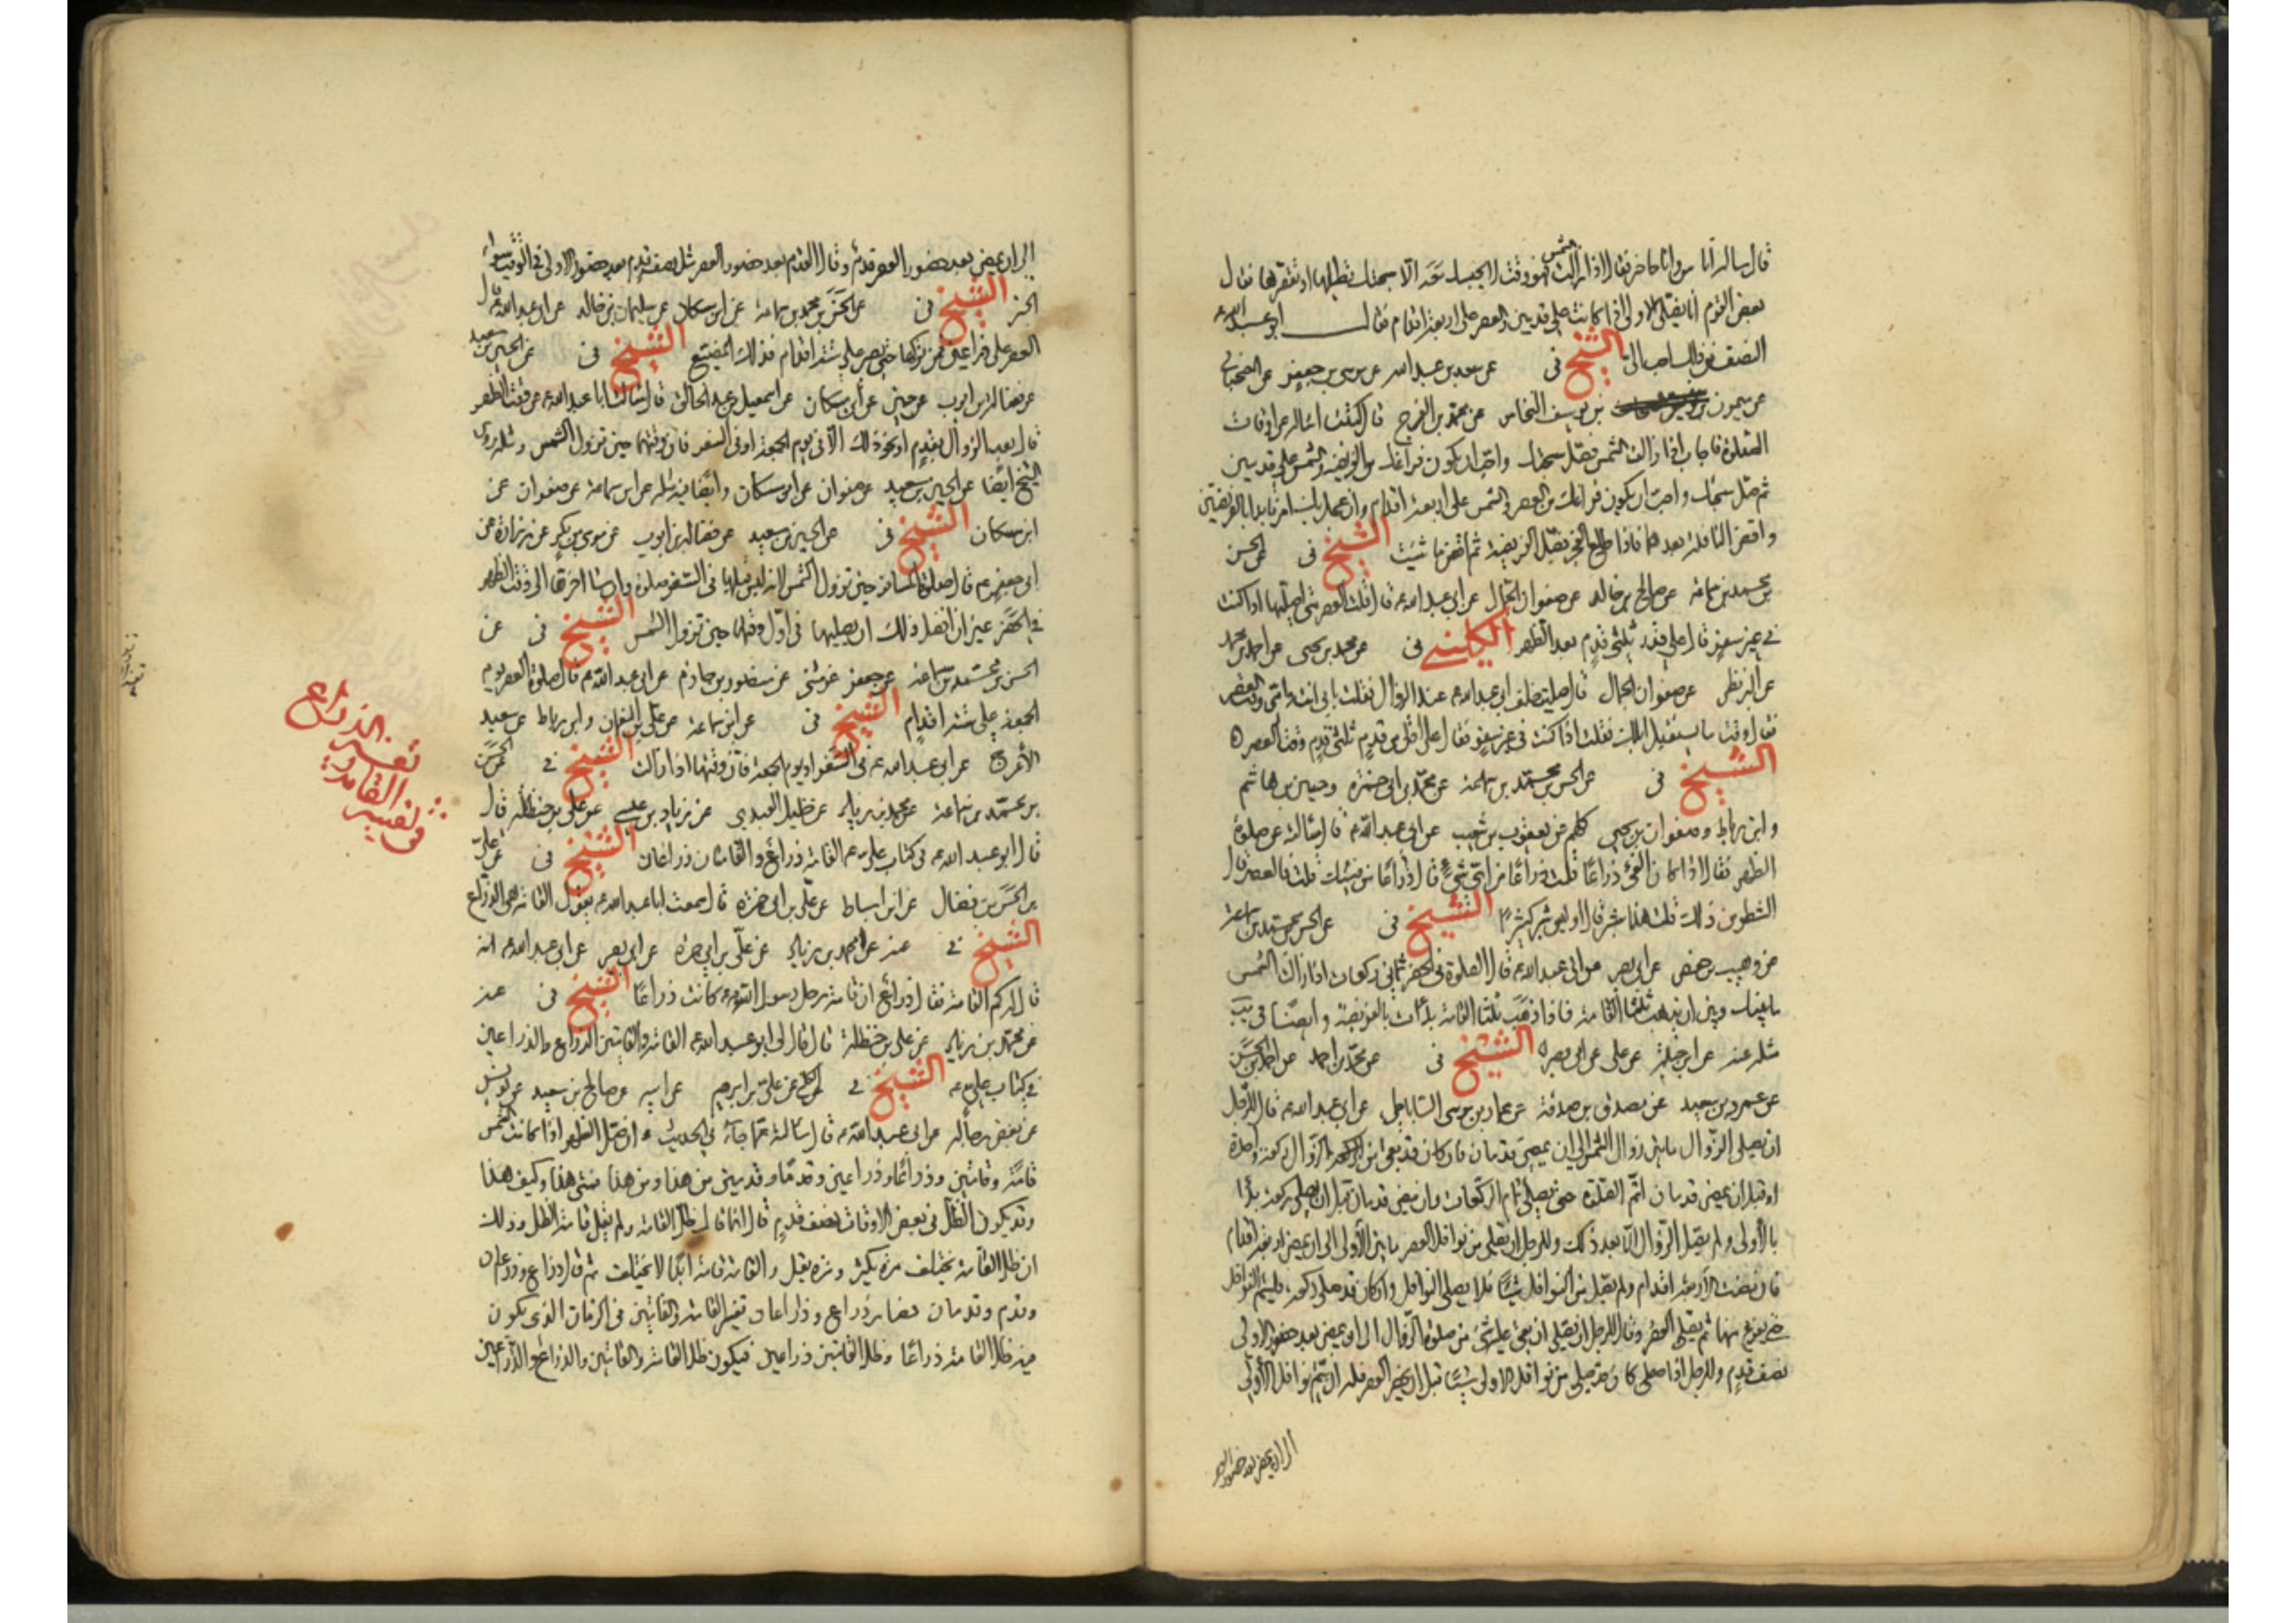 قال سأله اناس وانا حاضر فقال اذا زالت الشمس فهو وقت لا يحبسك عنه الا سبحتك تطيلها او تقصرها فقال
بعض القوم انا نصلي الاولى اذا كانت على قدمين والعصر على اربعة اقدام فقال ابو عبد الله ع
النصف من ذلك احب الي الشيخ في عن سعد بن عبد الله عن موسى بن جعفر عن
عن ميمون بن يوسف النخاس عن محمد بن الفرج قال كتبت اسأله عن اوقات
الصلوة فاجاب اذا زالت الشمس فصل سبحتك واحب ان يكون فراغك من الفريضة والشمس على قدمين
ثم صل سبحتك واحب ان يكون فراغك من العصر والشمس على اربعة اقدام وان عجل بك امر فابدا بالفريضتين
واقض النافلة بعدهما فاذا طلع الفجر فصل الفريضة ثم اقض ما شئت الشيخ في عن الحسن
بن محمد بن سماعة عن صالح بن خالد عن صفوان الجمال عن ابي عبد الله ع قال قلت العصر متى اصليها اذا كنت
في غير سفر قال على قدر ثلثي قدم بعد الظهر الكليني في عن محمد بن يحيى عن احمد بن محمد
عن البزنطي عن صفوان الجمال قال صليت خلف ابي عبد الله ع عند الزوال فقلت بابي انت وامي وقت العصر
فقال وقت ما يستقبل ابلك فقلت اذا كنت في غير سفر فقال على اقل من قدم ثلثي قدم وقت العصر
الشيخ في عن الحسن بن محمد بن سماعة عن محمد بن ابي حمزة وحسين بن هاشم
وابن رباط وصفوان بن يحيى كلهم عن يعقوب بن شعيب عن ابي عبد الله ع قال سألته عن صلوة
الظهر فقال اذا كان الفئ ذراعا قلت ذراعا من اي شئ قال ذراعا من فيئك قلت فالعصر قال
الشطر من ذلك قلت هذا شبر قال اوليس شبر كثيرا الشيخ في عن الحسن بن محمد بن سماعة
عن وهيب بن حفص عن ابي بصير عن ابي عبد الله ع قال الصلوة في الحضر ثماني ركعات اذا زالت الشمس
ما بينك وبين ان يذهب ثلثا القامة فاذا ذهب ثلثا القامة بدأت بالفريضة وايضا في
مثله عنه عن ابن جبلة عن علي عن ابي بصير الشيخ في عن محمد بن احمد عن احمد بن الحسن
عن عمرو بن سعيد عن مصدق بن صدقة عن عمار بن موسى الساباطي عن ابي عبد الله ع قال للرجل
ان يصلي الزوال ما بين زوال الشمس الى ان يمضي قدمان فان كان قد بقي من الزوال ركعة واحدة
او قبل ان يمضي قدمان اتم الصلوة حتى يصلي تمام الركعات وان مضى قدمان قبل ان يصلي ركعة بدأ
بالأولى ولم يصل الزوال الا بعد ذلك وللرجل ان يصلي من نوافل العصر ما بين الأولى الى ان يمضي اربعة اقدام
فان مضت الاربعة اقدام ولم يصل من النوافل شيئا فلا يصلي النوافل وان كان قد صلى ركعة فليتم النوافل
حتى يفرغ منها ثم يصلي العصر وقال للرجل ان يصلي ان بقي عليه شئ من صلوة الزوال الى ان يمضي بعد حضور الاولى
نصف قدم وللرجل اذا كان قد صلى من نوافل الاولى شيئا قبل ان يحضر العصر فله ان يتم نوافل الأولى
الى ان يمضي بعد حضور العصر
الى ان يمضي بعد حضور العصر قدم وقال القدم بعد حضور العصر مثل نصف قدم بعد حضور الاولى في الوقت سواء
الخبر الشيخ في عن الحسن بن محمد بن سماعة عن ابن مسكان عن سليمان بن خالد عن ابي عبد الله ع قال
العصر على ذراعين فمن تركها حتى تصير على ستة اقدام فذلك المضيع الشيخ في عن الحسين بن سعيد
عن فضالة بن ايوب عن حسين عن ابن مسكان عن اسمعيل بن عبد الخالق قال سألت ابا عبد الله ع عن وقت الظهر
قال بعد الزوال بقدم او نحو ذلك الا في يوم الجمعة او في السفر فان وقتها حين تزول الشمس ومثله روى
الشيخ ايضا عن الحسين بن سعيد عن صفوان عن ابن مسكان وايضا فيه مثله عن ابن سماعة عن صفوان عن
ابن مسكان الشيخ في عن الحسين بن سعيد عن فضالة بن ايوب عن موسى بن بكر عن زرارة عن
ابي جعفر ع قال صلوة المسافر حين تزول الشمس لانه ليس قبلها في السفر صلوة وان شاء اخرها الى وقت الظهر
في الحضر غير ان افضل ذلك ان يصليها في اول وقتها حين تزول الشمس الشيخ في عن
الحسن بن محمد بن سماعة عن جعفر عن مثنى عن منصور بن حازم عن ابي عبد الله ع قال صلوة العصر يوم
الجمعة على ستة اقدام الشيخ في عن ابن سماعة عن علي بن النعمان وابن رباط عن سعيد
الأعرج عن ابي عبد الله ع في السفر او يوم الجمعة فان وقتها اذا زالت الشيخ في عن الحسن
بن محمد بن سماعة عن محمد بن زياد عن خليل العبدي عن زياد بن عيسى عن علي بن حنظلة قال
قال ابو عبد الله ع في كتاب علي ع القامة ذراع والقامتان ذراعان الشيخ في عن علي
بن الحسن بن فضال عن ابن اسباط عن علي بن ابي حمزة قال سمعت ابا عبد الله ع يقول القامة هي الذراع
الشيخ في عنه عن محمد بن زياد عن علي بن ابي حمزة عن ابي بصير عن ابي عبد الله ع انه
قال له كم القامة فقال ذراع ان قامة رحل رسول الله ص كانت ذراعا الشيخ في عنه
عن محمد بن زياد عن علي بن حنظلة قال قال لي ابو عبد الله ع القامة والقامتين الذراع والذراعين
في كتاب علي ع الشيخ في عن علي بن ابراهيم عن ابيه عن صالح بن سعيد عن يونس
عن بعض رجاله عن ابي عبد الله ع قال سألته عما جاء في الحديث ان صل الظهر اذا كانت الشمس
قامة وقامتين وذراعا وذراعين وقدما وقدمين من هذا ومن هذا فمتى هذا وكيف هذا
وقد يكون الظل في بعض الاوقات نصف قدم قال انما قال ظل القامة ولم يقل قامة الظل وذلك
ان ظل القامة يختلف مرة يكثر ومرة يقل والقامة قامة ابدا لا يختلف ثم قال ذراع وذراعان
وقدم وقدمان فصار ذراع وذراعان تفسير القامة والقامتين في الزمان الذي يكون
فيه ظل القامة ذراعا وظل القامتين ذراعين فيكون ظل القامة والقامتين والذراع والذراعين
تفسير الذراع
في تفسير القامة و